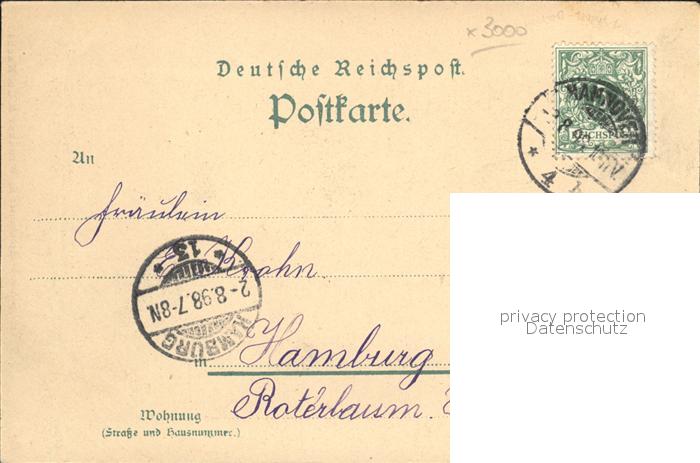 x3000
Deutsche Reichspost.
Postkarte.
HANNOVER
REICHSPOST
4
An
Fräulein
E. Krohn.
* 13 *
2-8.98.7-8N.
HAMBURG
in Hamburg
Roterbaum.
Wohnung
(Straße und Hausnummer.)
privacy protection
Datenschutz